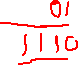 01
1110